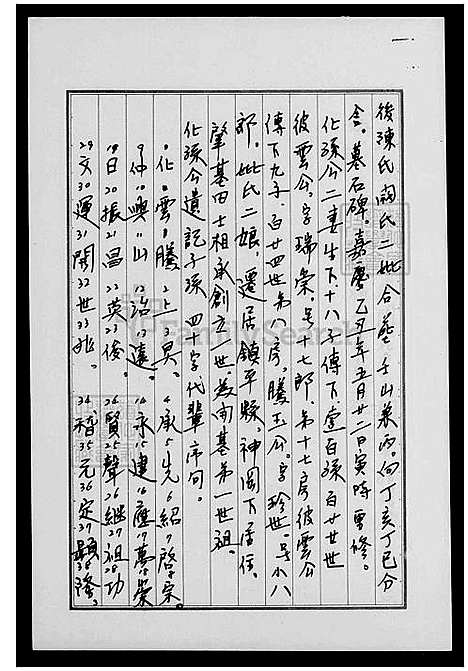 後陳氏 氏二妣合葬壬山兼丙。向丁亥丁巳分
金。墓石碑。嘉慶乙丑年五月廿二日寅時重修。
化孫公二妻生下十八子傳下。壹百孫百廿世世
彼雲公。字瑞榮。号十七郎。第十七房彼雲公
傳下九子。百廿四世第八房。騰玉公。字珍世。号小八
郎。妣氏二娘。遷居鎮平縣。神岡下居住。
肇基田土相承創立世。為開基弟一世祖。
化孫公遺記子孫四十字代輩序向。
1化2雲3騰上3昊。4承5先6紹7啓8宗
9仲10興11山12治13遠。14永15建16應17萬18榮
19日20振21昌22英23俊。24賢25聲26繼27祖28功
29文30運31開32世33兆。34積35元36定37顯38隆。
FamilySearch